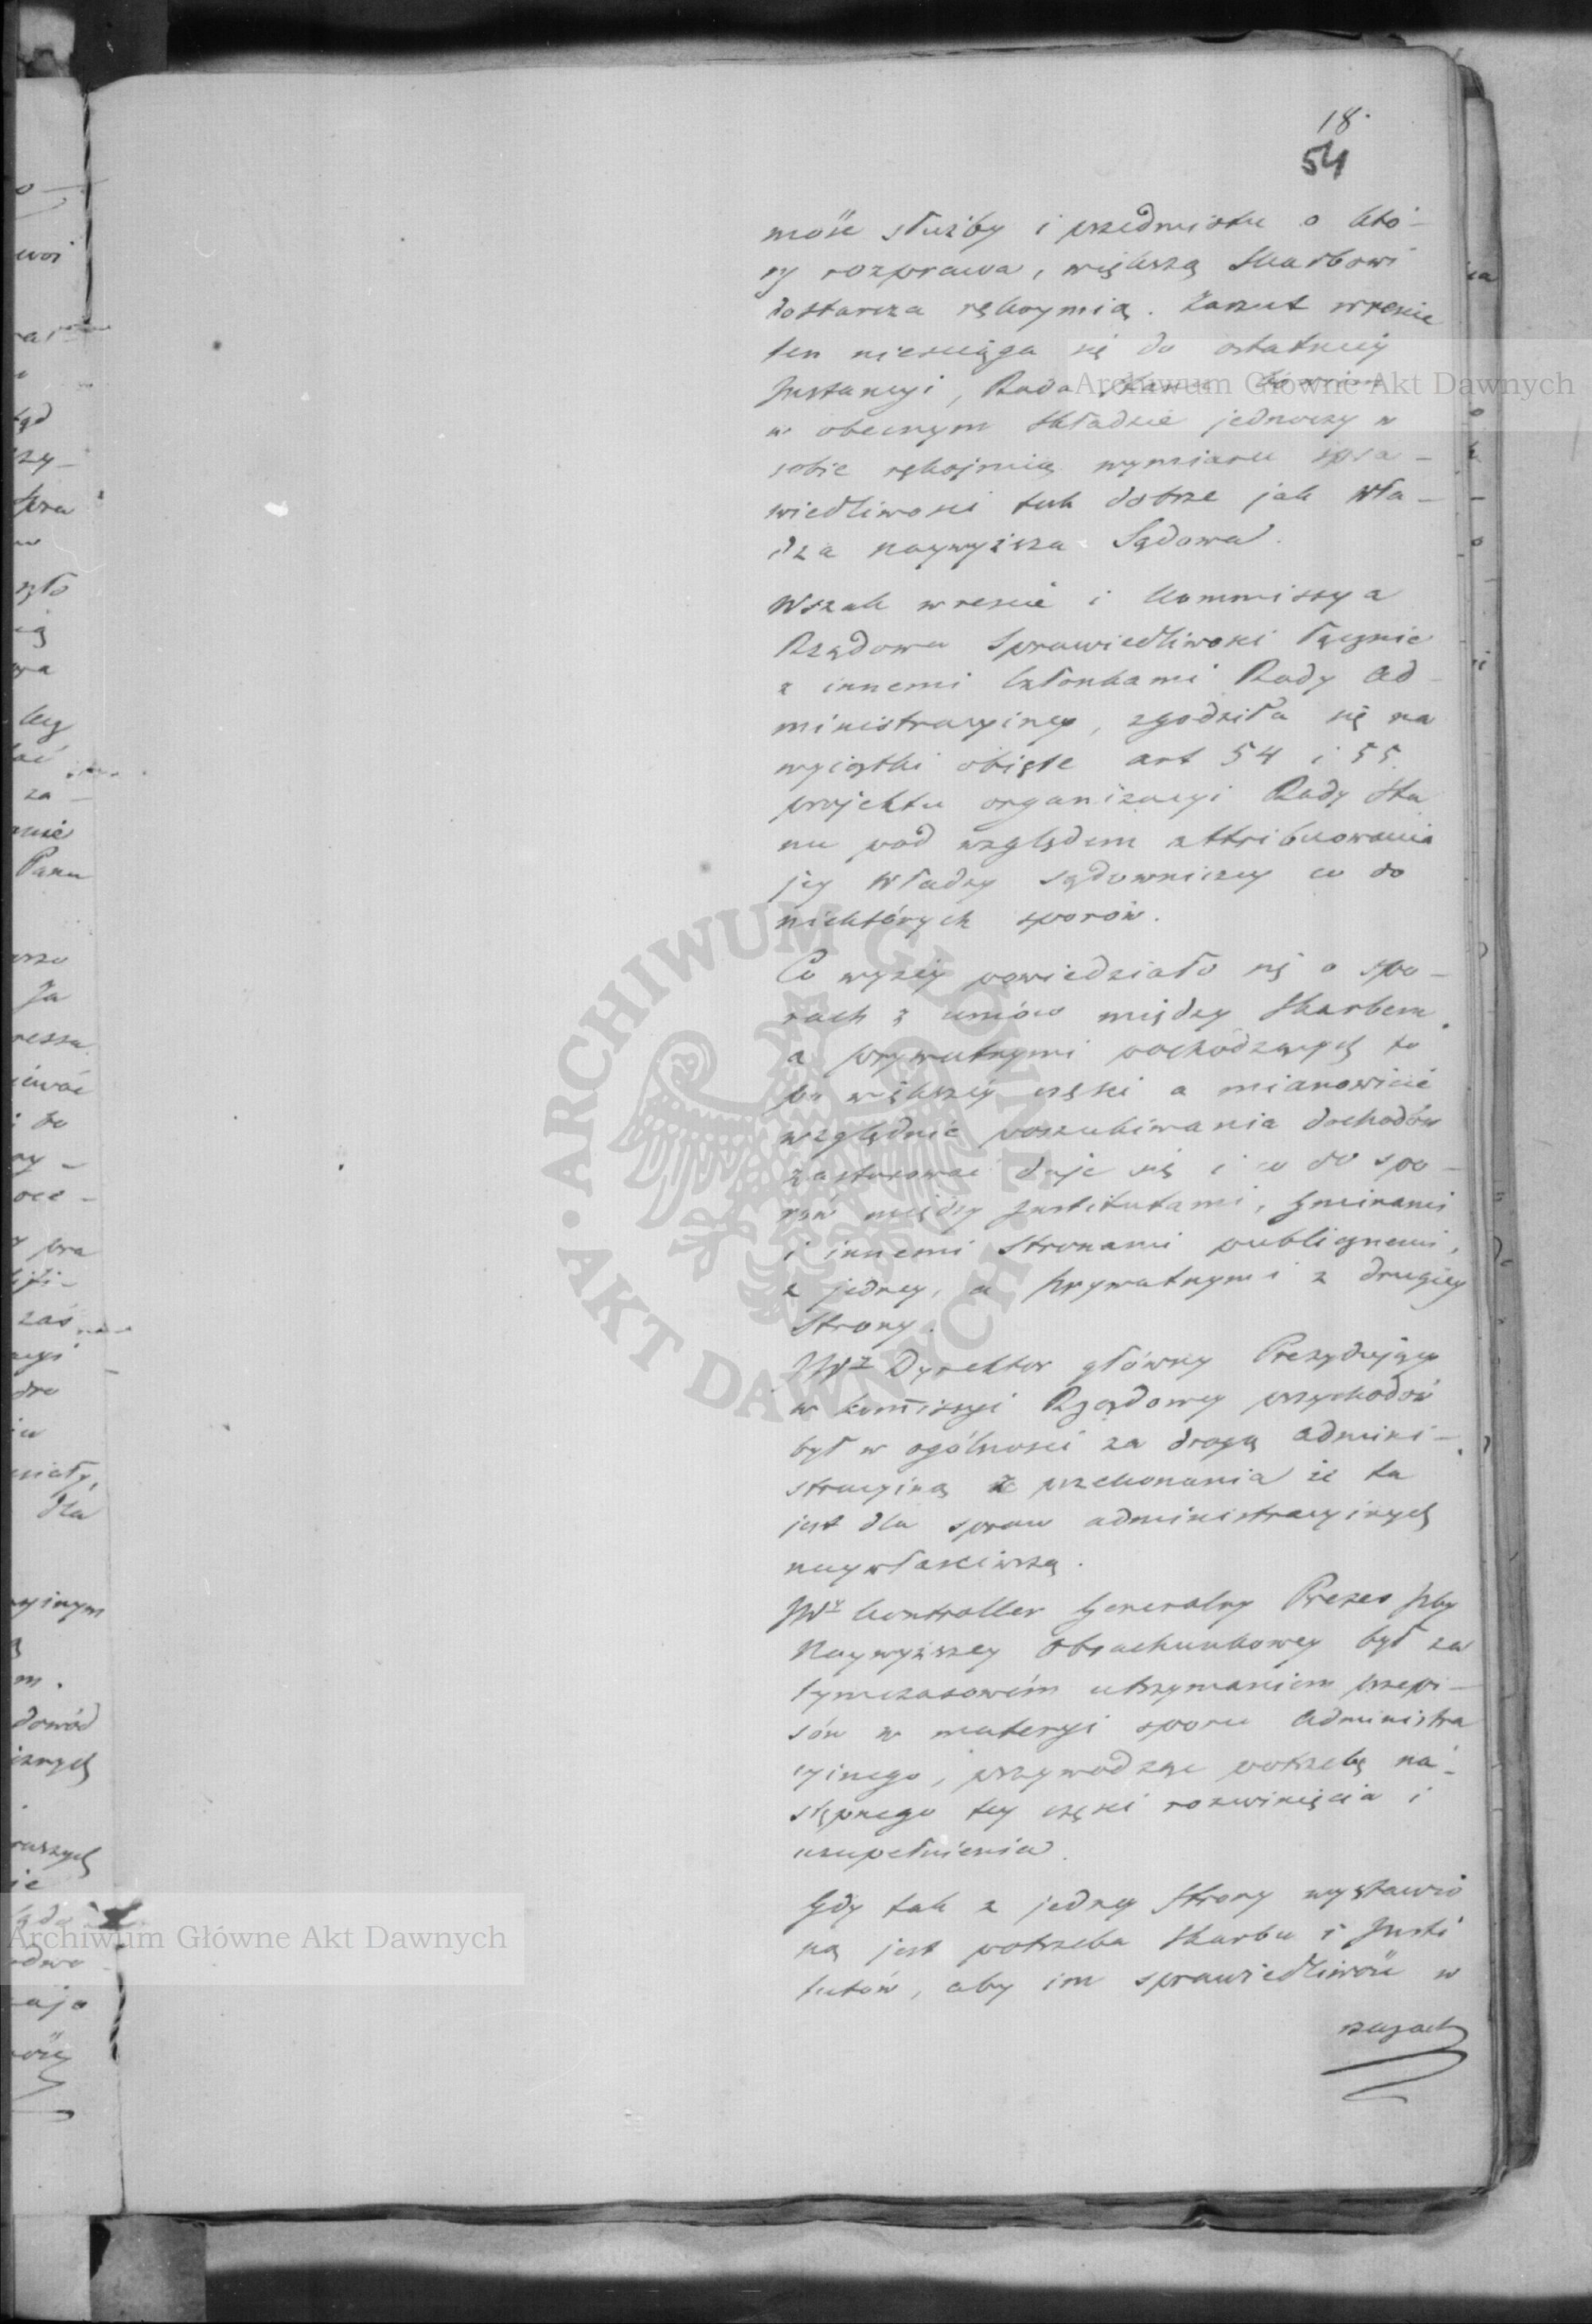 18.
54
mość służby i przedmiotu o któ-
ry rozprawa, większą Skarbowi
dostarcza rękoymią. Zarzut wreście
ten nieściąga się do ostatniey
Instancyi, Rada Stanu bowiem
w obecnym składzie jednoczy w
sobie rękojmię wymiaru spra-
wiedliwości tak dobrze jak Wła-
dza naywyższa Sądowa.
Wszak wreście i Kommissya
Rządowa Sprawiedliwości łącznie
z innemi Członkami Rady Ad-
ministracyiney, zgodziła się na
wyiątki obięte art 54 i 55.
projektu organizacyi Rady Sta
nu pod względem attribuowania
jey Władzy sądowniczey co do
niektórych sporów.
Co wyżey powiedziało się o spo-
rach z umów między Skarbem
a prywatnymi pochodzących to
po większey części a mianowicie
względnie poszukiwania dochodów
zastosować daje się i co do spo-
rów między Institutami, gminami
i innemi stronami publicznemi,
z jedney, a prywatnymi z drugiey
Strony.
JWż Dyrektor główny Prezyduiący
w kommissyi Rządowey przychodów
był w ogólności za drogą admini-
stracyiną z przekonania że ta
jest dla spraw administracyinych
naywłaściwszą.
JWż Kontroller Generalny Prezes Izby
Naywyższey Obrachunkowey był za
tymczasowém utrzymaniem przepi-
sów w materyi sporu Administra
cyinego, przywodząc potrzebę na-
stępnego tey części rozwinięcia i
uzupełnienia.
Gdy tak z jedney Strony wystawio
ną jest potrzeba Skarbu i Insti
tutów, aby im sprawiedliwość w
Archiwum Główne Akt Dawnych
Archiwum Główne Akt Dawnych
ARCHIWUM GŁÓWNE · AKT DAWNYCH ·